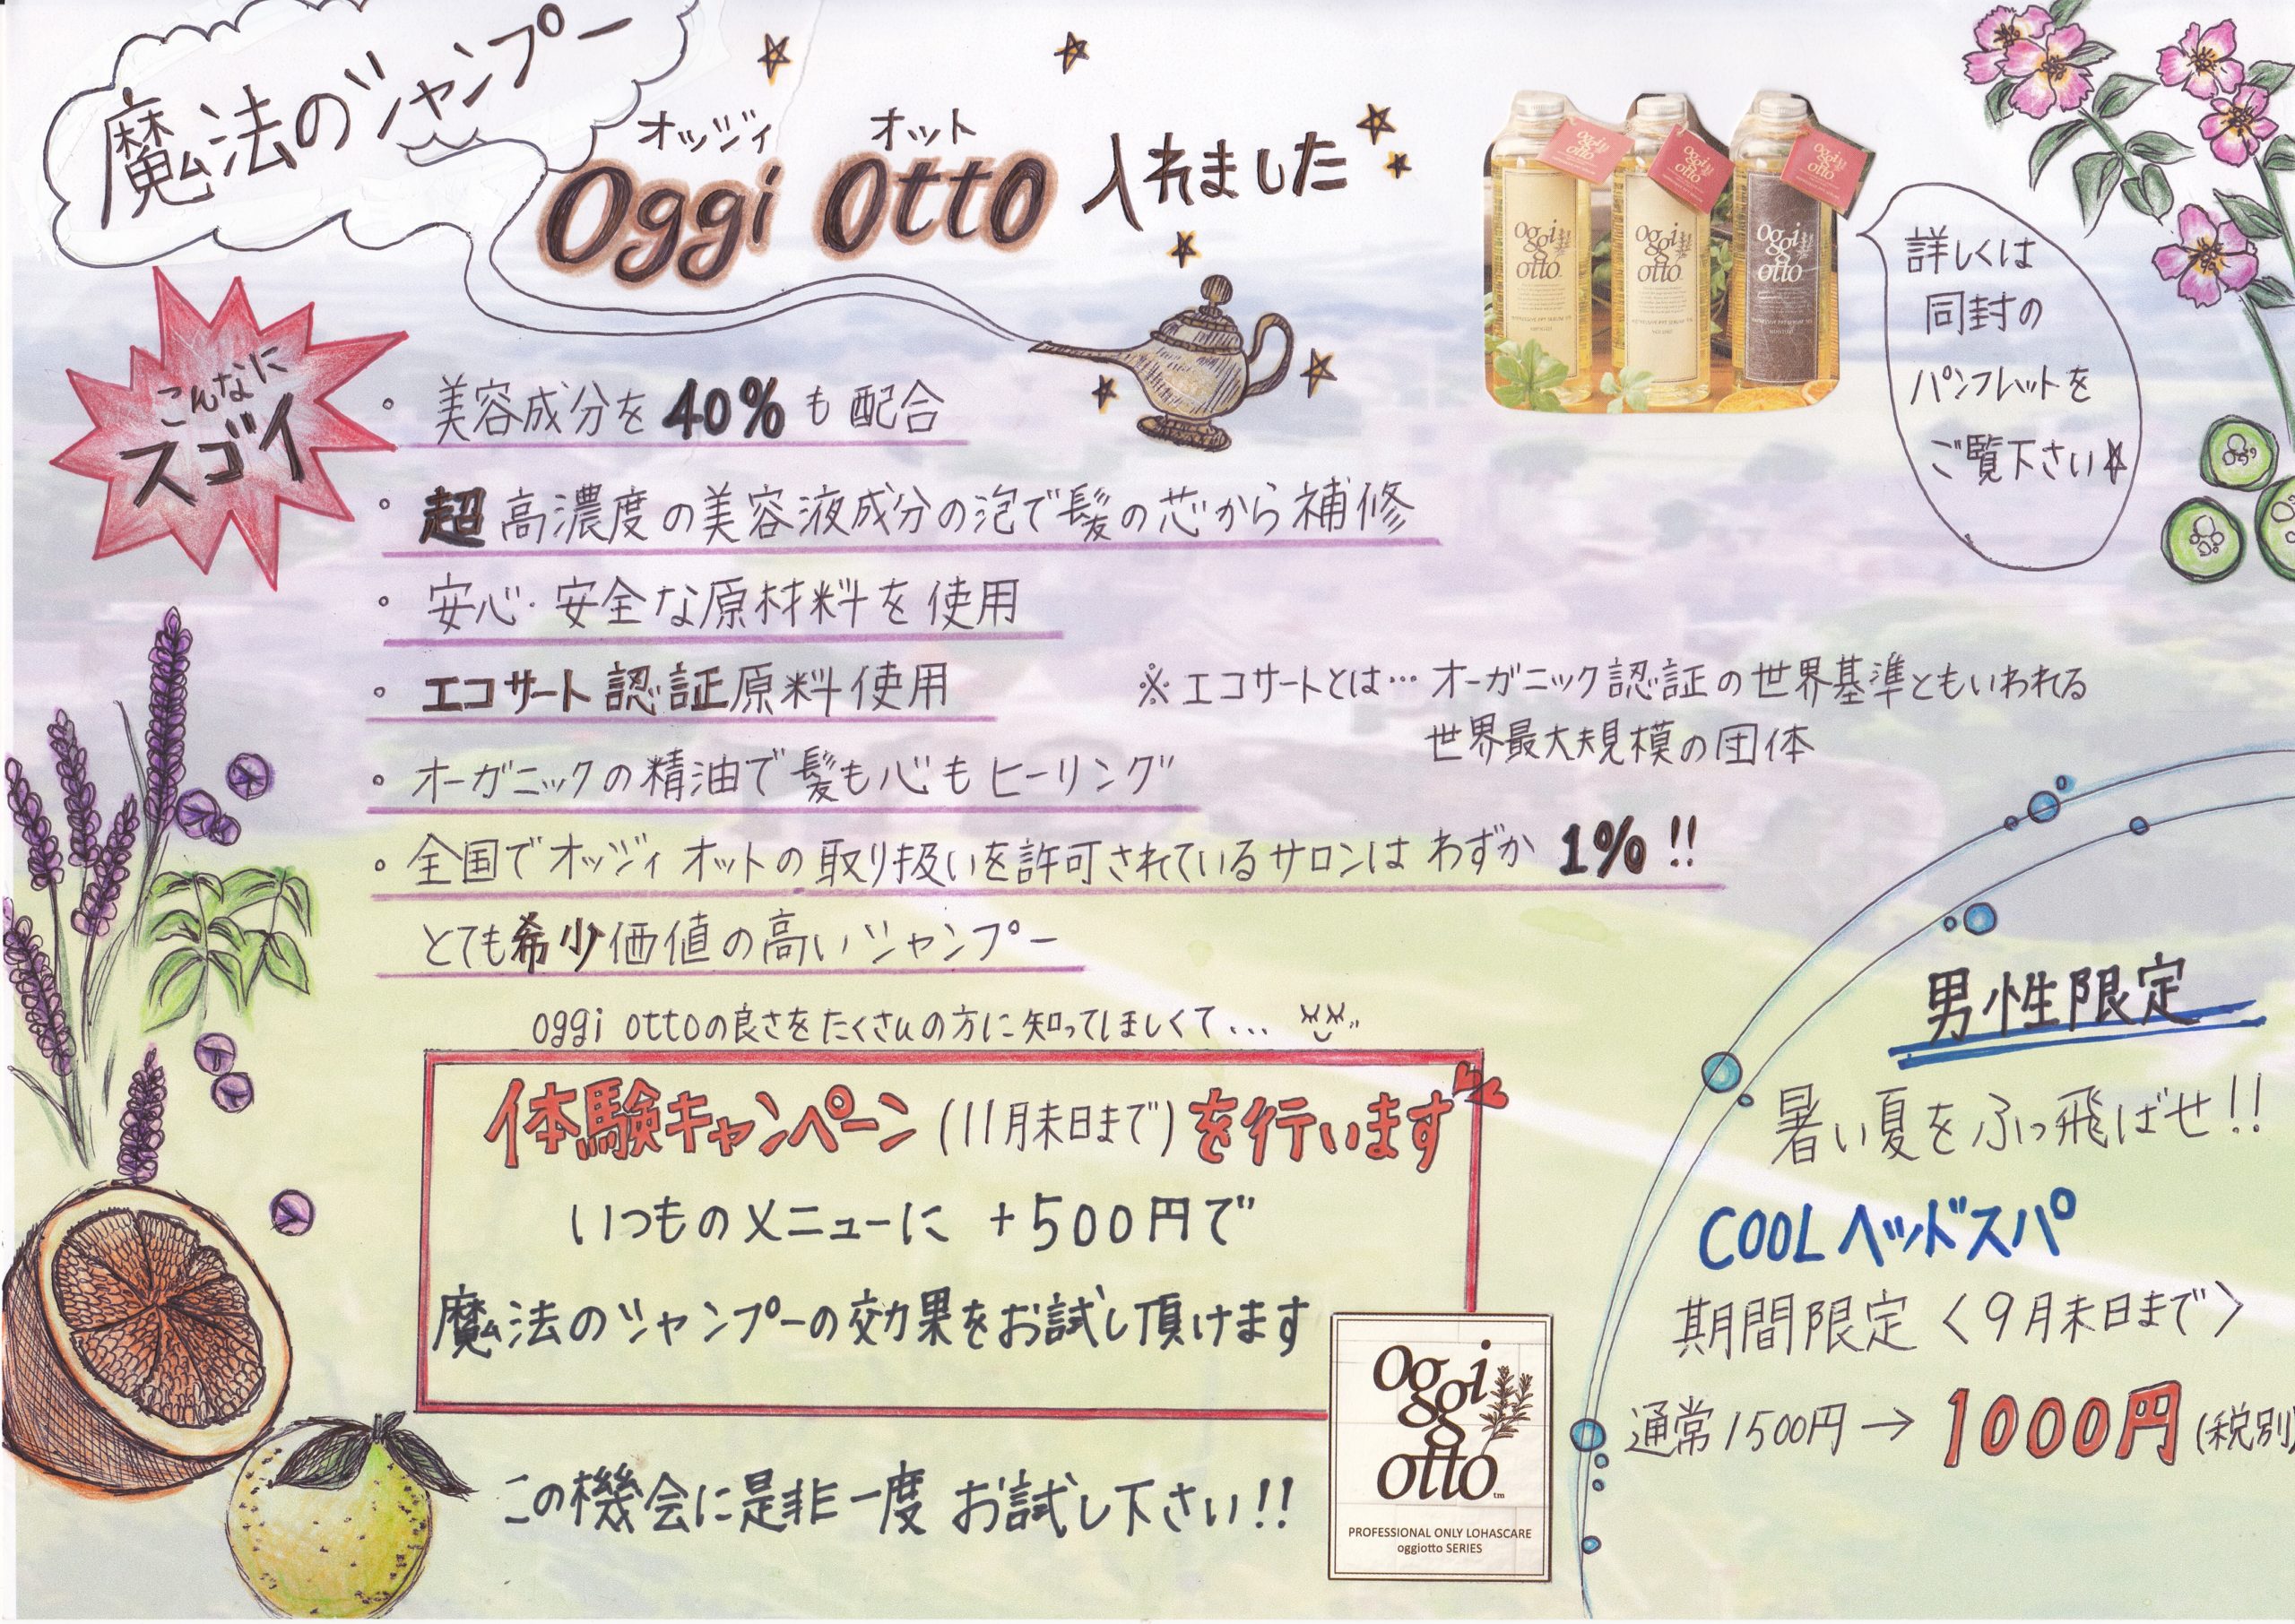 魔法のシャンプー
オッジィ オット
Oggi Otto 入れました
oggi otto
oggi otto
oggi otto
詳しくは
同封の
パンフレットを
ご覧下さい☆
こんなに
スゴイ
・美容成分を40%も配合
・超高濃度の美容液成分の泡で髪の芯から補修
・安心・安全な原材料を使用
・エコサート認証原料使用
※エコサートとは…オーガニック認証の世界基準ともいわれる
世界最大規模の団体
・オーガニックの精油で髪も心もヒーリング
・全国でオッジィオットの取り扱いを許可されているサロンはわずか1%!!
とても希少価値の高いシャンプー
oggi ottoの良さをたくさんの方に知ってほしくて...
体験キャンペーン(11月末日まで)を行います
いつものメニューに +500円で
魔法のシャンプーの効果をお試し頂けます
この機会に是非一度 お試し下さい!!
oggi
otto™
PROFESSIONAL ONLY LOHASCARE
oggiotto SERIES
男性限定
暑い夏をふっ飛ばせ!!
COOLヘッドスパ
期間限定〈9月末日まで〉
通常1500円→1000円(税別